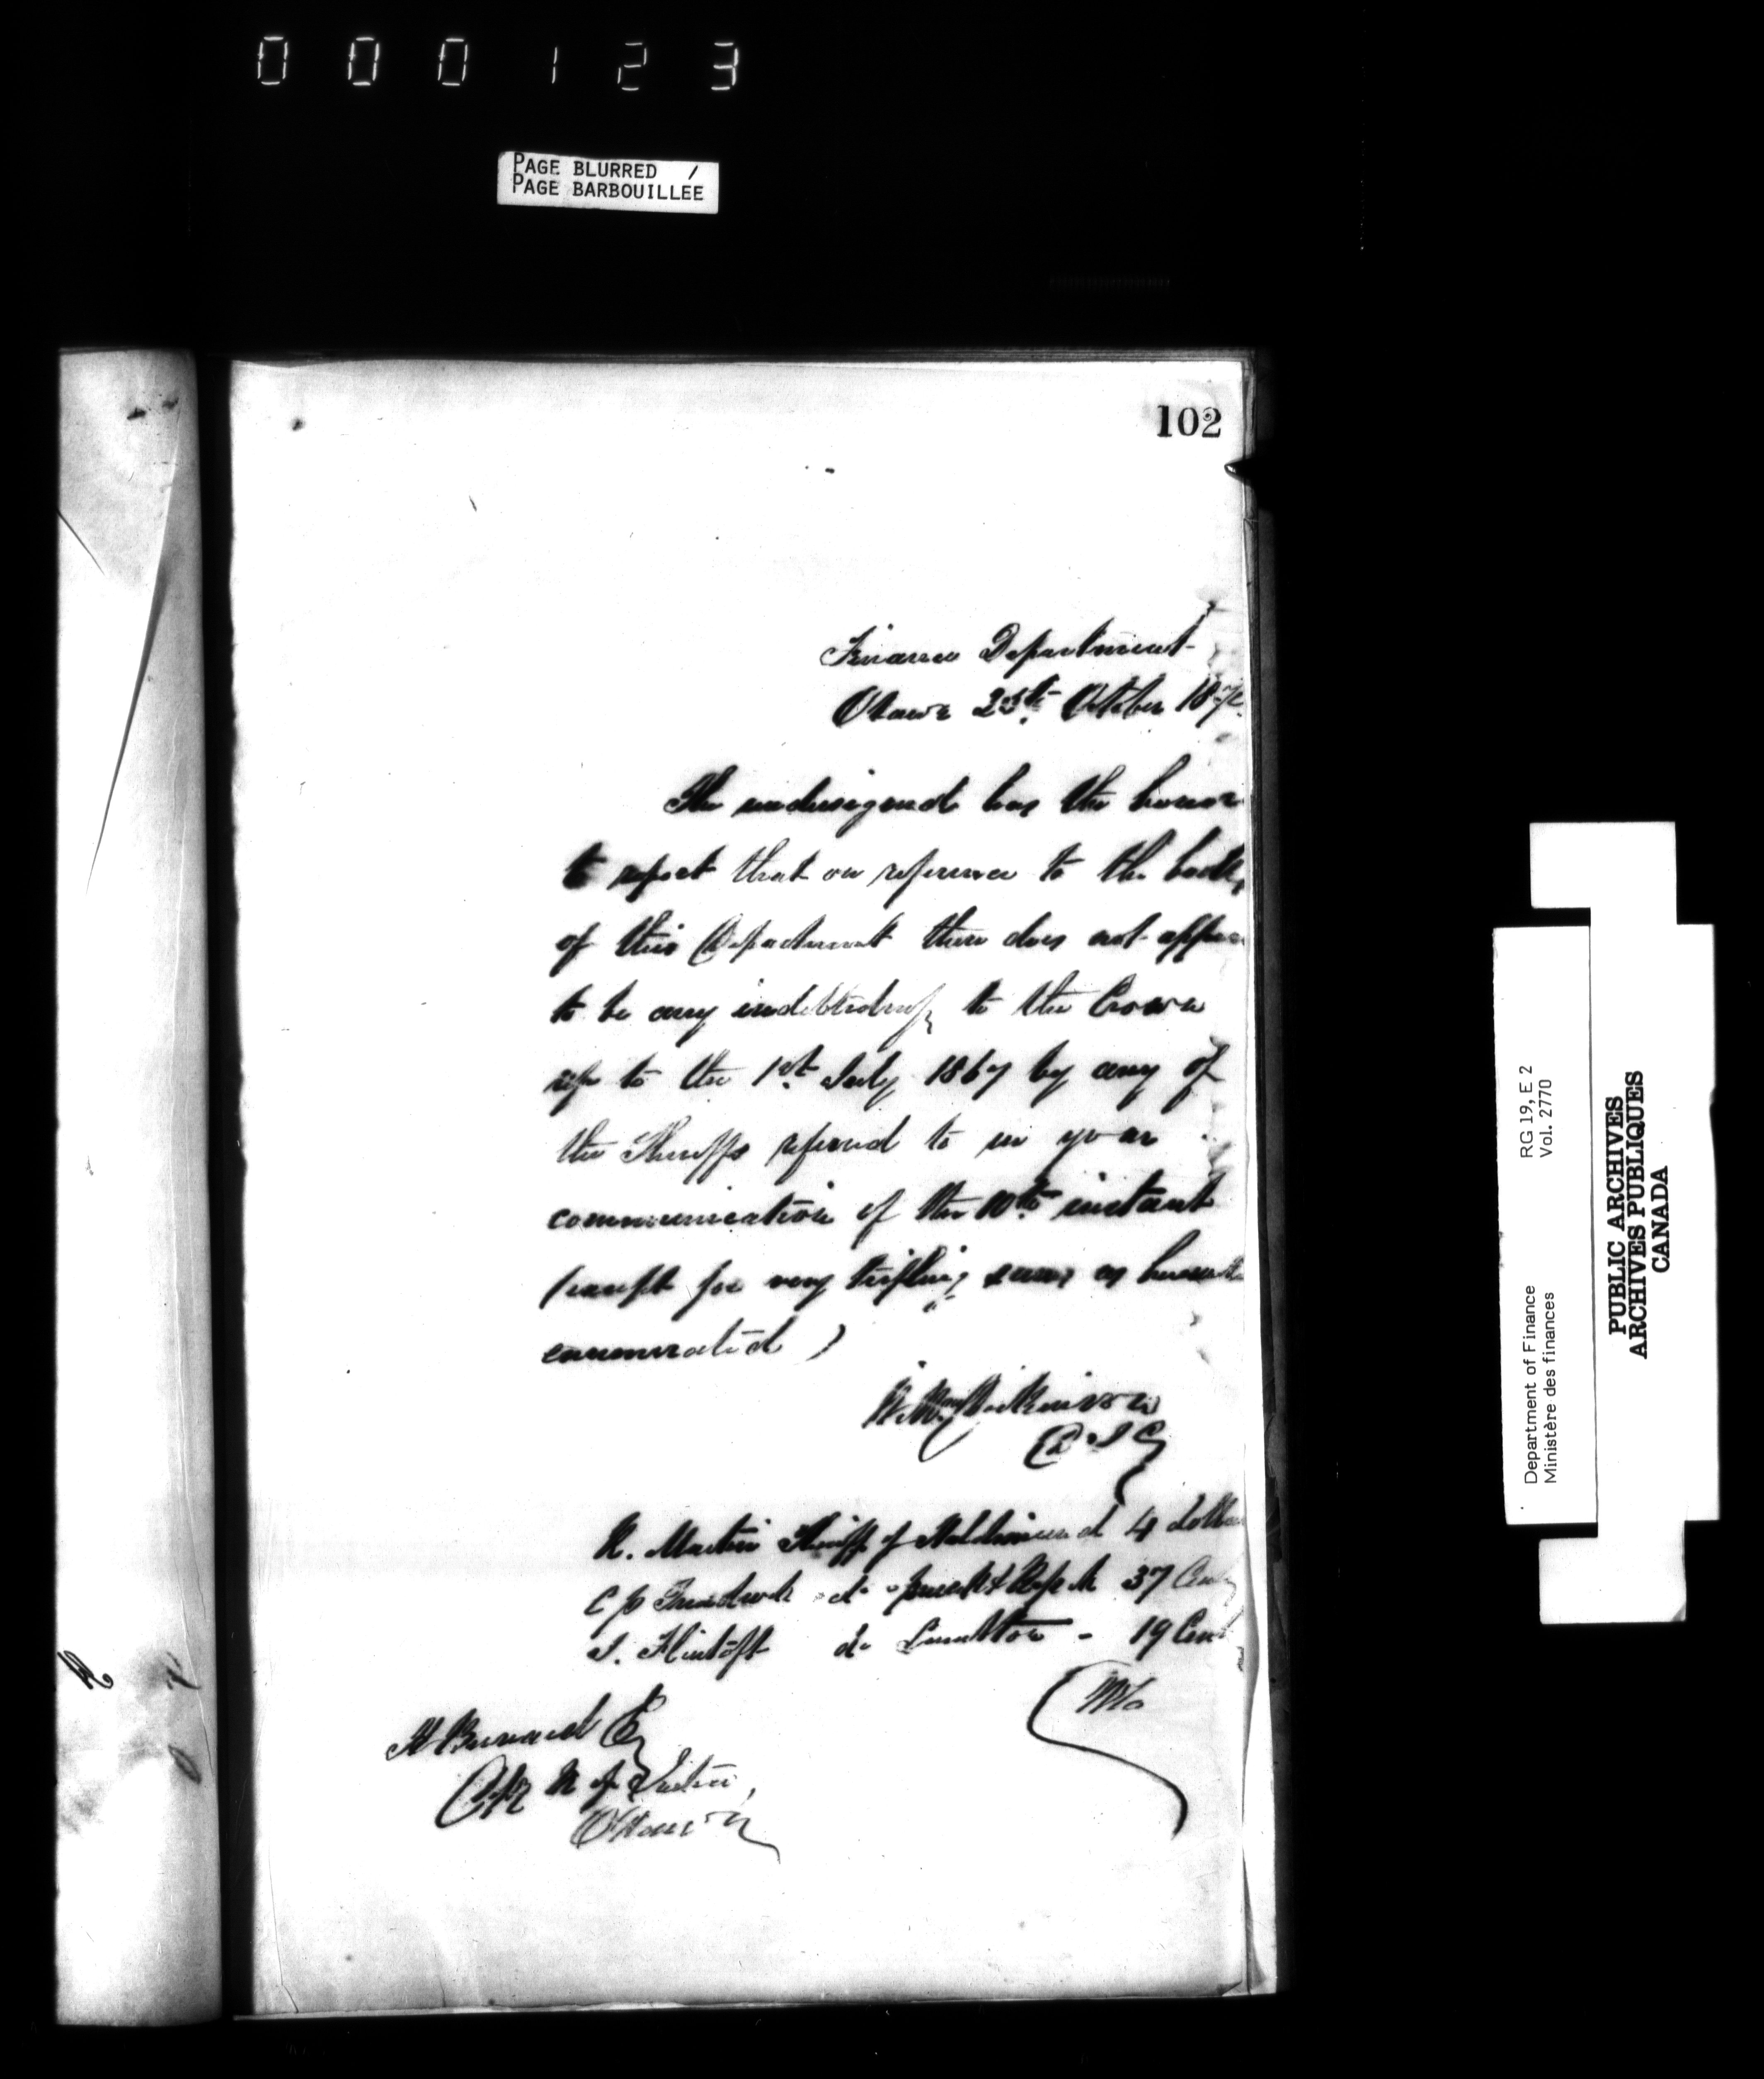 000123
PAGE BLURRED /
PAGE BARBOUILLEE
102
Finance Department
Ottawa 25th October 187
The undersigned has the honor
to report that on reference to the books
of this Department there does not appear
to be any indebtedness to the Crown
up to the 1st July 1867 by any of
the Sheriffs referred to in your
communication of the 10th instant
(except for very trifling sums as
enumerated)
Dickinson
R. Martin Sheriff of Haldimand 4 dollars
C P Treadwell do Prescott & Russell 37 Cents
J. Flintoft do Lambton - 19 Cents
H Bernard Esq
of Justice,
Ottawa
Department of Finance RG 19, E 2
Ministère des finances Vol. 2770
PUBLIC ARCHIVES
ARCHIVES PUBLIQUES
CANADA